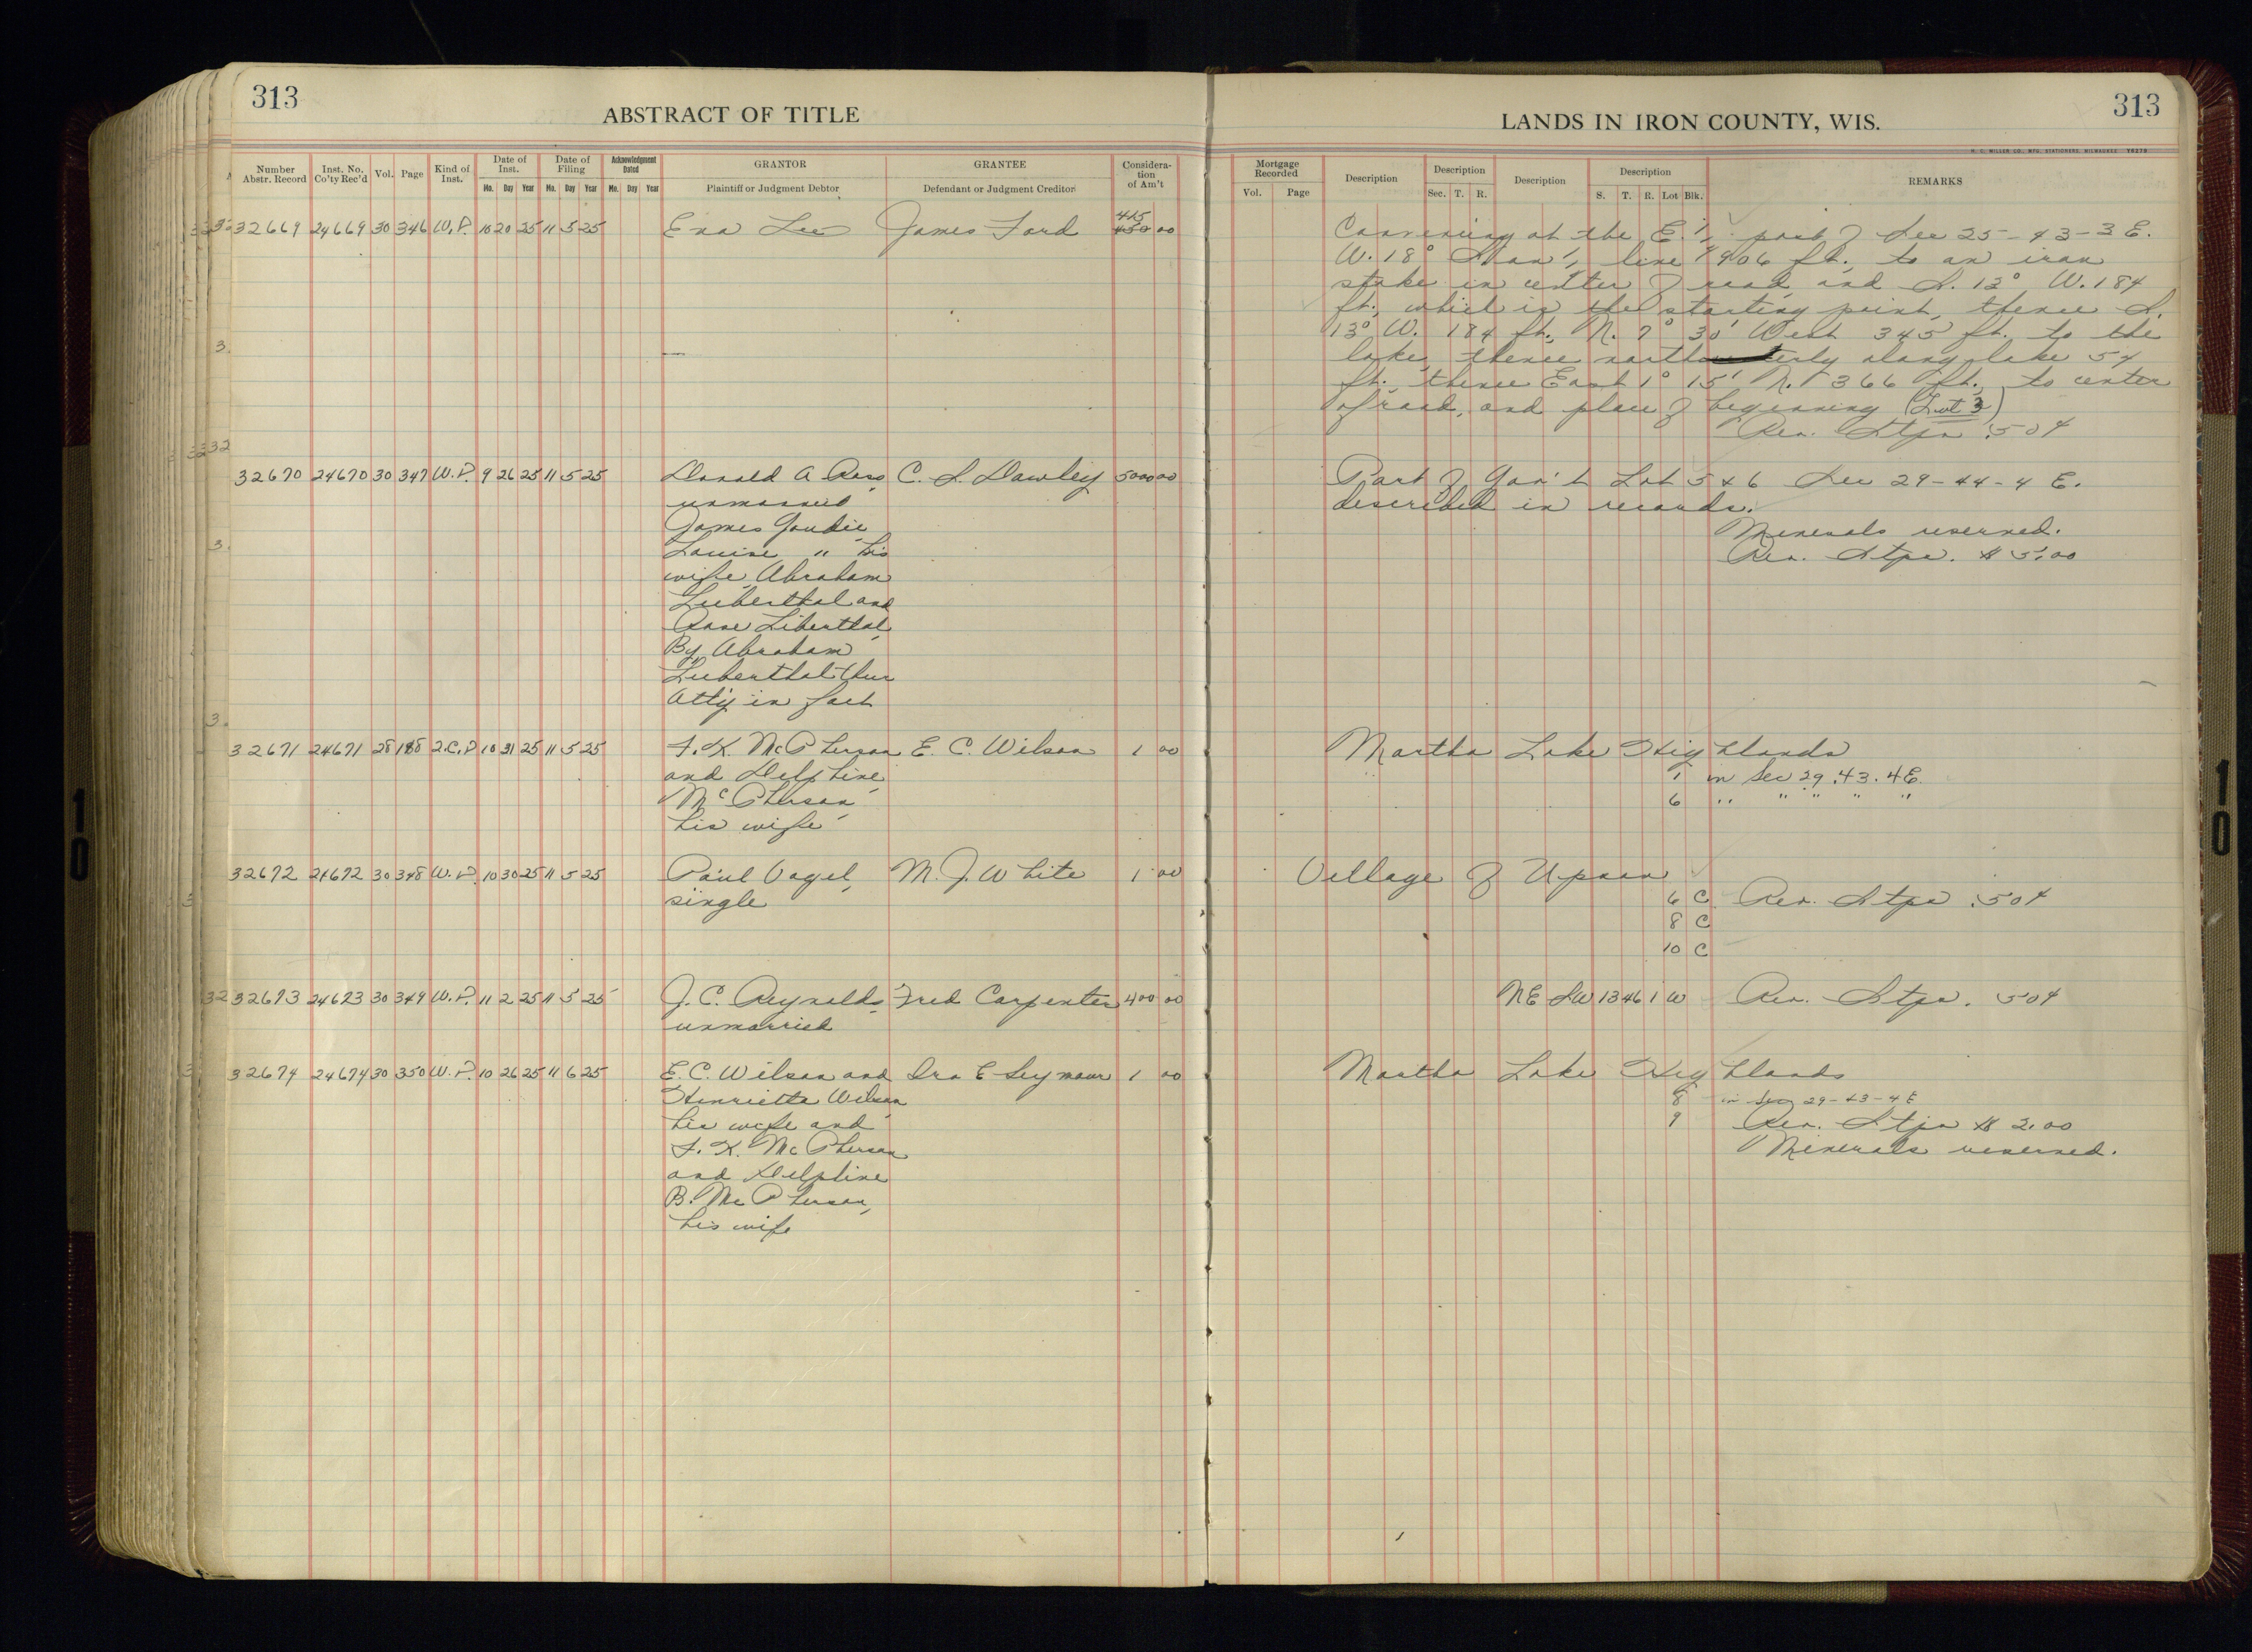 313
ABSTRACT OF TITLE
Number Abstr. Record
Inst. No. Co'ty Rec'd
Vol.
Page
Kind of Inst.
Date of Inst.
Mo. Day Year
Date of Filing
Mo. Day Year
Acknowledgment Dated
Mo. Day Year
GRANTOR
Plaintiff or Judgment Debtor
GRANTEE
Defendant or Judgment Creditor
Considera-tion of Am't
32669 24669 30 346 W.D. 10 20 25 11 5 25 Ena Lee James Ford 415 00
32670 24670 30 347 W.D. 9 26 25 11 5 25 Donald A Ross, C. L. Dawley 5000 00
unmarried
James Goudie,
Louise " his
wife, Abraham
Lieberthal and
Rose Liberthal,
By Abraham
Lieberthal their
Att'y in fact
32671 24671 28 188 2.C.D 10 31 25 11 5 25 F. K. McPherson E. C. Wilson 1 00
and Delphine
McPherson,
his wife
32672 24672 30 348 W.D. 10 30 25 11 5 25 Paul Vogel, M. J. White 1 00
single
32673 24673 30 349 W.D. 11 2 25 11 5 25 J. C. Reynolds, Fred Carpenter 400 00
unmarried
32674 24674 30 350 W.D. 10 26 25 11 6 25 E. C. Wilson and Ira E Seymour 1 00
Henrietta Wilson
his wife and
F. K. McPherson
and Delphine
B. McPherson,
his wife
LANDS IN IRON COUNTY, WIS.
313
H. C. MILLER CO., MFG. STATIONERS, MILWAUKEE
Mortgage Recorded
Vol. Page
Description
Description
Sec. T. R.
Description
Description
S. T. R. Lot Blk.
REMARKS
Commencing at the E. 1/4 post of Sec 25-43-3 E.
W. 18° line 906 ft. to an iron
stake in center of road, and S. 13° W. 184
ft., which is the starting point, thence S.
13° W. 184 ft., N. 7° 30' West 345 ft. to the
lake, thence northerly along lake 54
ft., thence East 1° 15' N. 366 ft. to center
of road, and place of beginning (Lot 3)
Rev. Stps .50¢
Part of Gov't Lot 5 & 6 Sec 29-44-4 E.
described in records.
Minerals reserved.
Rev. Stps. $5.00
Martha Lake Highlands
1 in Sec 29.43.4E.
6 " " " " "
Village of Upson
6 C Rev. Stps .50¢
8 C
10 C
NE SW 13 46 1 W Rev. Stps. 50¢
Martha Lake Highlands
8 in Sec 29-43-4E
9 Rev. Stps $2.00
Minerals reserved.
10
10